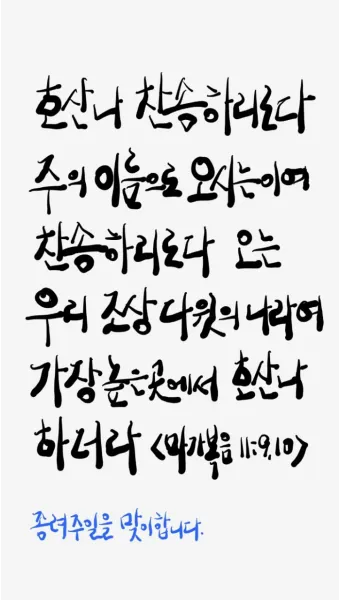 호산나 찬송하리로다
주의 이름으로 오시는이여
찬송하리로다 오는
우리 조상 다윗의 나라여
가장 높은 곳에서 호산나
하더라 <마가복음 11:9,10>
종려주일을 맞이합니다.